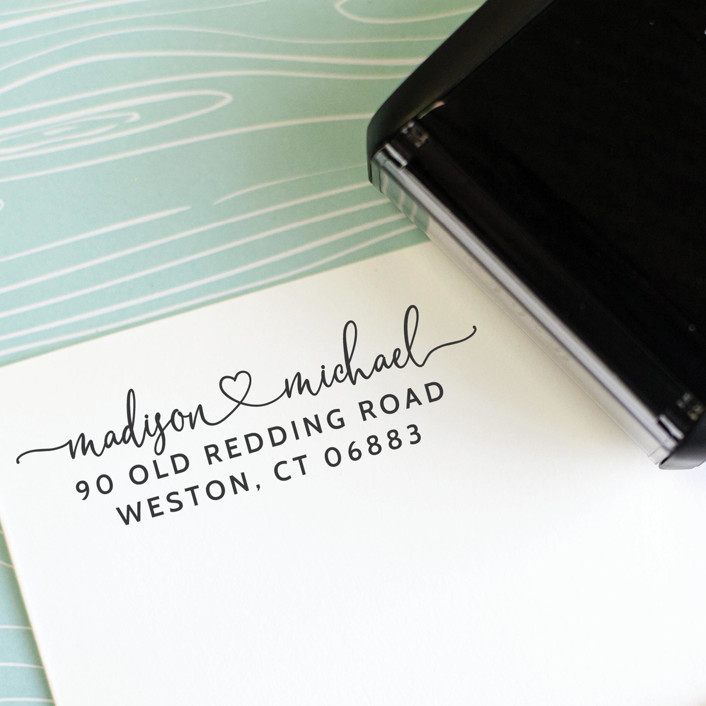 madison♡michael
90 OLD REDDING ROAD
WESTON, CT 06883